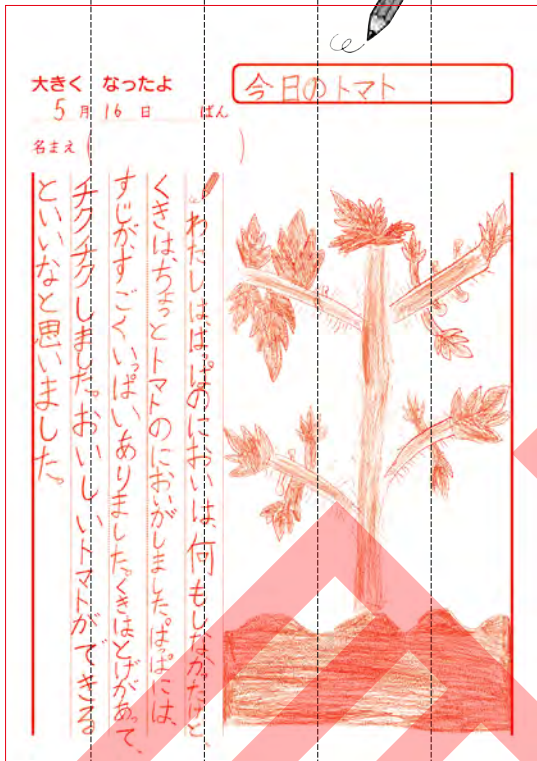 今日のトマト
大きく なったよ
5月16日 ばん
名まえ( )
わたしは、はっぱのにおいは、何もしなかったけど、
くきは、ちょっとトマトのにおいがしました。はっぱには、
すじが、すごくいっぱいありました。くきはとげがあって、
チクチクしました。おいしいトマトができる
といいなと思いました。